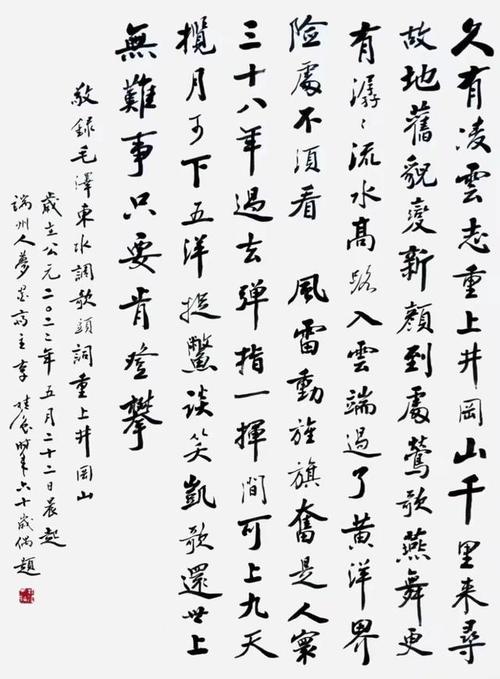 久有凌雲志重上井岡山千里来尋
故地舊貌變新顔到處鶯歌燕舞更
有潺〻流水高路入雲端過了黄洋界
险處不須看 風雷動旌旗奮是人寰
三十八年過去弹指一揮間可上九天
攬月可下五洋捉鱉谈笑凱歌還世上
無難事只要肯登攀
敬録毛澤東水調歌頭詞重上井岡山
歲在公元二〇二二年五月二十二日晨起
端州人夢墨齋主李時年六十歲偶題